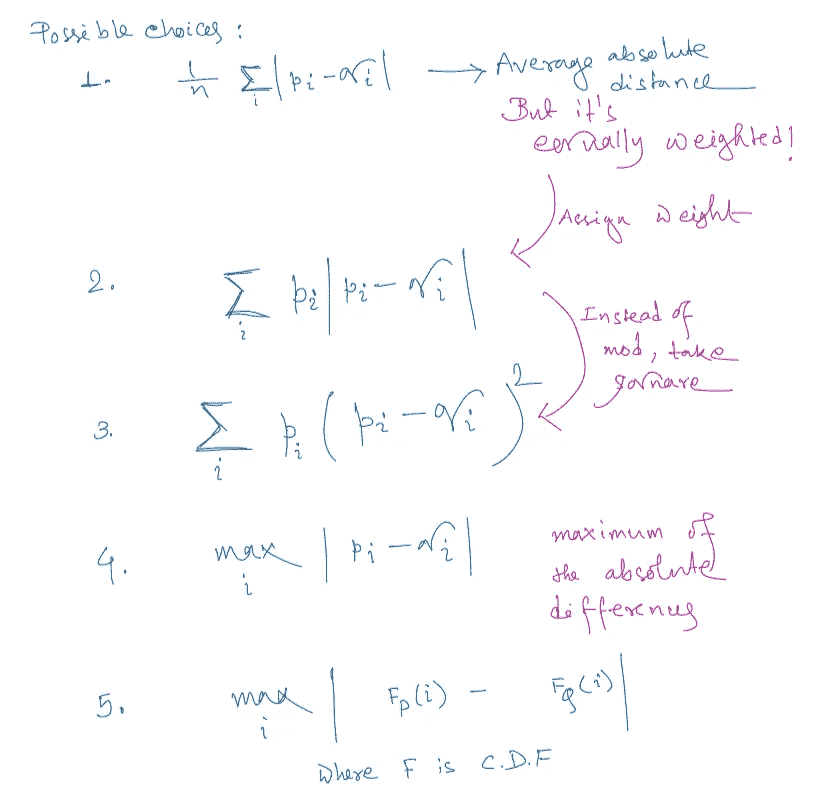 Possible choices :
1. 1/n Σ_i |p_i - q_i| → Average absolute
distance
But it's
equally weighted!
Assign weight
2. Σ_i p_i |p_i - q_i|
Instead of
mod, take
square
3. Σ_i p_i (p_i - q_i)^2
4. max_i |p_i - q_i| maximum of
the absolute
differences
5. max_i |F_p(i) - F_q(i)|
Where F is C.D.F